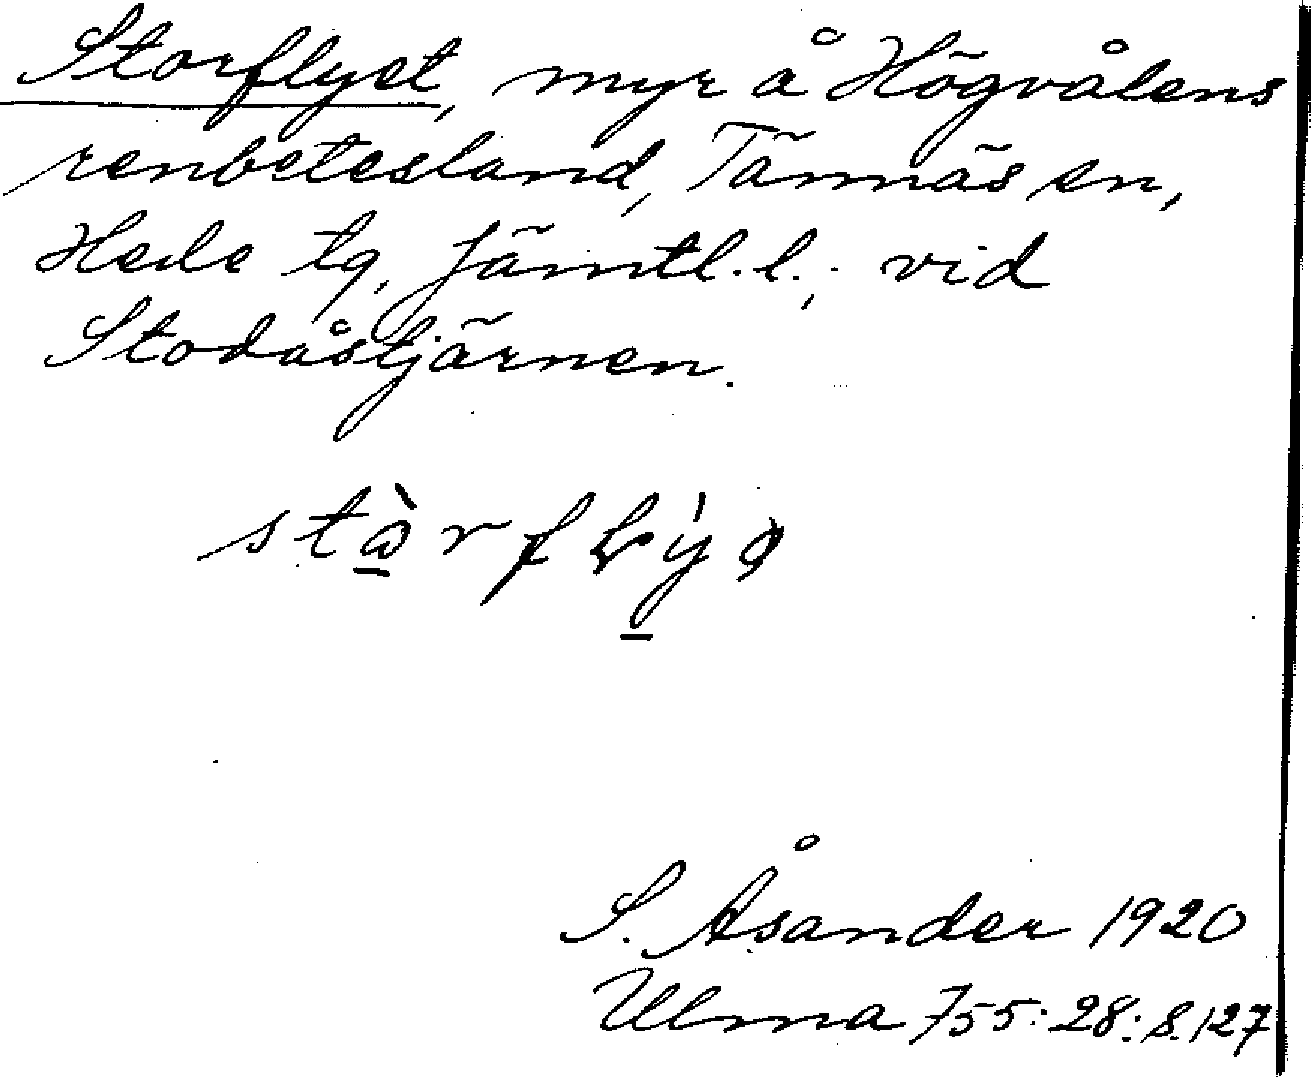 Storflyet, myr å Högvålens
renbetesland, Tännäs sn,
Hede tg, Jämtl. l.; vid
Stodåstjärnen.
S. Åsander 1920
Ulma 755:28: s. 127